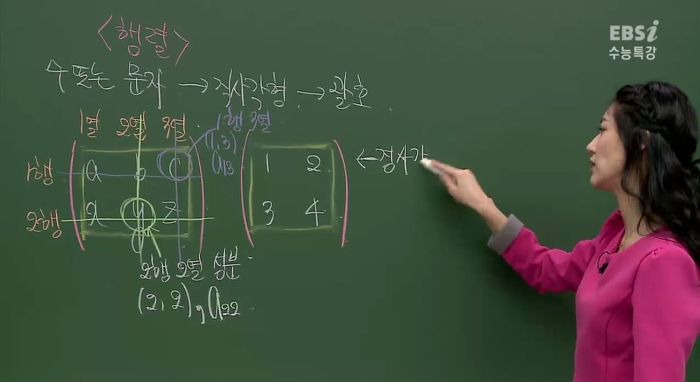 EBSi
수능특강
<행렬>
수 또는 문자 → 직사각형 → 괄호
1열 2열 3열
1행 3열
(1, 3)
a13
1행 a b c
2행 x y z
1 2
3 4
← 정사각
2행 2열 성분
(2, 2), a22